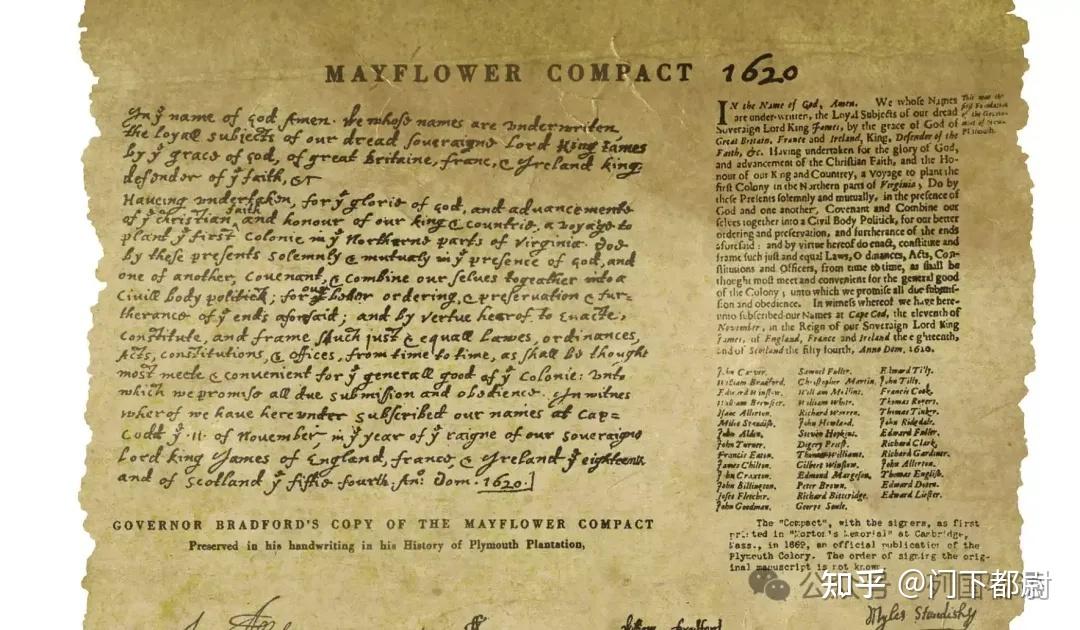 MAYFLOWER COMPACT 1620
In yͤ name of god Amen. We whose names are underwriten,
the loyall subjects of our dread soveraigne Lord King James
by yͤ grace of God, of great Britaine, franc, & Ireland king,
defender of yͤ faith, &c
Haveing undertaken, for yͤ glorie of God, and advancemente
of yͤ christian faith and honour of our king & countrie, a voyage to
plant yͤ first colonie in yͤ Northerne parts of Virginia. Doe
by these presents solemnly & mutualy in yͤ presence of God, and
one of another, covenant, & combine our selves togeather into a
Civill body politick; for our better ordering, & preservation & fur=
therance of yͤ ends aforesaid; and by vertue hearof to enacte,
constitute, and frame shuch just & equall Lawes, ordinances,
Acts, constitutions, & offices, from time to time, as shall be thought
most meete & convenient for yͤ generall good of yͤ Colonie: unto
which we promise all due submission and obedience. In witnes
wherof we have hereunder subscribed our names at Cap=
Codd yͤ .11. of November in yͤ year of yͤ raigne of our soveraigne
Lord king James of England, franc, & Ireland yͤ eighteenth
and of Scotland yͤ fiftie fourth. Anͦ: Dom. 1620.]
GOVERNOR BRADFORD'S COPY OF THE MAYFLOWER COMPACT
Preserved in his handwriting in his History of Plymouth Plantation,
IN the Name of God, Amen. We whose Names
are under-written, the Loyal Subjects of our dread
Sovereign Lord King James, by the grace of God of
Great Britain, France and Ireland, King, Defender of the
Faith, &c. Having undertaken for the glory of God,
and advancement of the Christian Faith, and the Ho-
nour of our King and Countrey, a Voyage to plant the
first Colony in the Northern parts of Virginia; Do by
these Presents solemnly and mutually, in the presence of
God and one another, Covenant and Combine our
selves together into a Civil Body Politick, for our better
ordering and preservation, and furtherance of the ends
aforesaid: and by virtue hereof do enact, constitute and
frame such just and equal Laws, Ordinances, Acts, Con-
stitutions and Officers, from time to time, as shall be
thought most meet and convenient for the general good
of the Colony; unto which we promise all due submis-
sion and obedience. In witness whereof we have here-
unto subscribed our Names at Cape Cod, the eleventh of
November, in the Reign of our Sovereign Lord King
James, of England, France and Ireland the eighteenth,
and of Scotland the fifty fourth, Anno Dom. 1620.
This was the
first Foundation
of the
Plimouth.
John Carver. Samuel Fuller. Edward Tilly.
William Bradford. Christopher Martin. John Tilly.
Edward Winslow. William Mullins. Francis Cook.
William Brewster. William White. Thomas Rogers.
Isaac Allerton. Richard Warren. Thomas Tinker.
Miles Standish. John Howland. John Ridgdale.
John Alden. Steven Hopkins. Edward Fuller.
John Turner. Digery Priest. Richard Clark.
Francis Eaton. Thomas Williams. Richard Gardiner.
James Chilton. Gilbert Winslow. John Allerton.
John Craxton. Edmond Margeson. Thomas English.
John Billington. Peter Brown. Edward Doten.
Joses Fletcher. Richard Bitteridge. Edward Liester.
John Goodman. George Soule.
The "Compact", with the signers, as first
printed in "Morton's Memorial" at Cambridge,
Mass., in 1669, an official publication of the
Plymouth Colony. The order of signing the orig-
inal manuscript is not known.
知乎 @门下都尉
Myles Standish